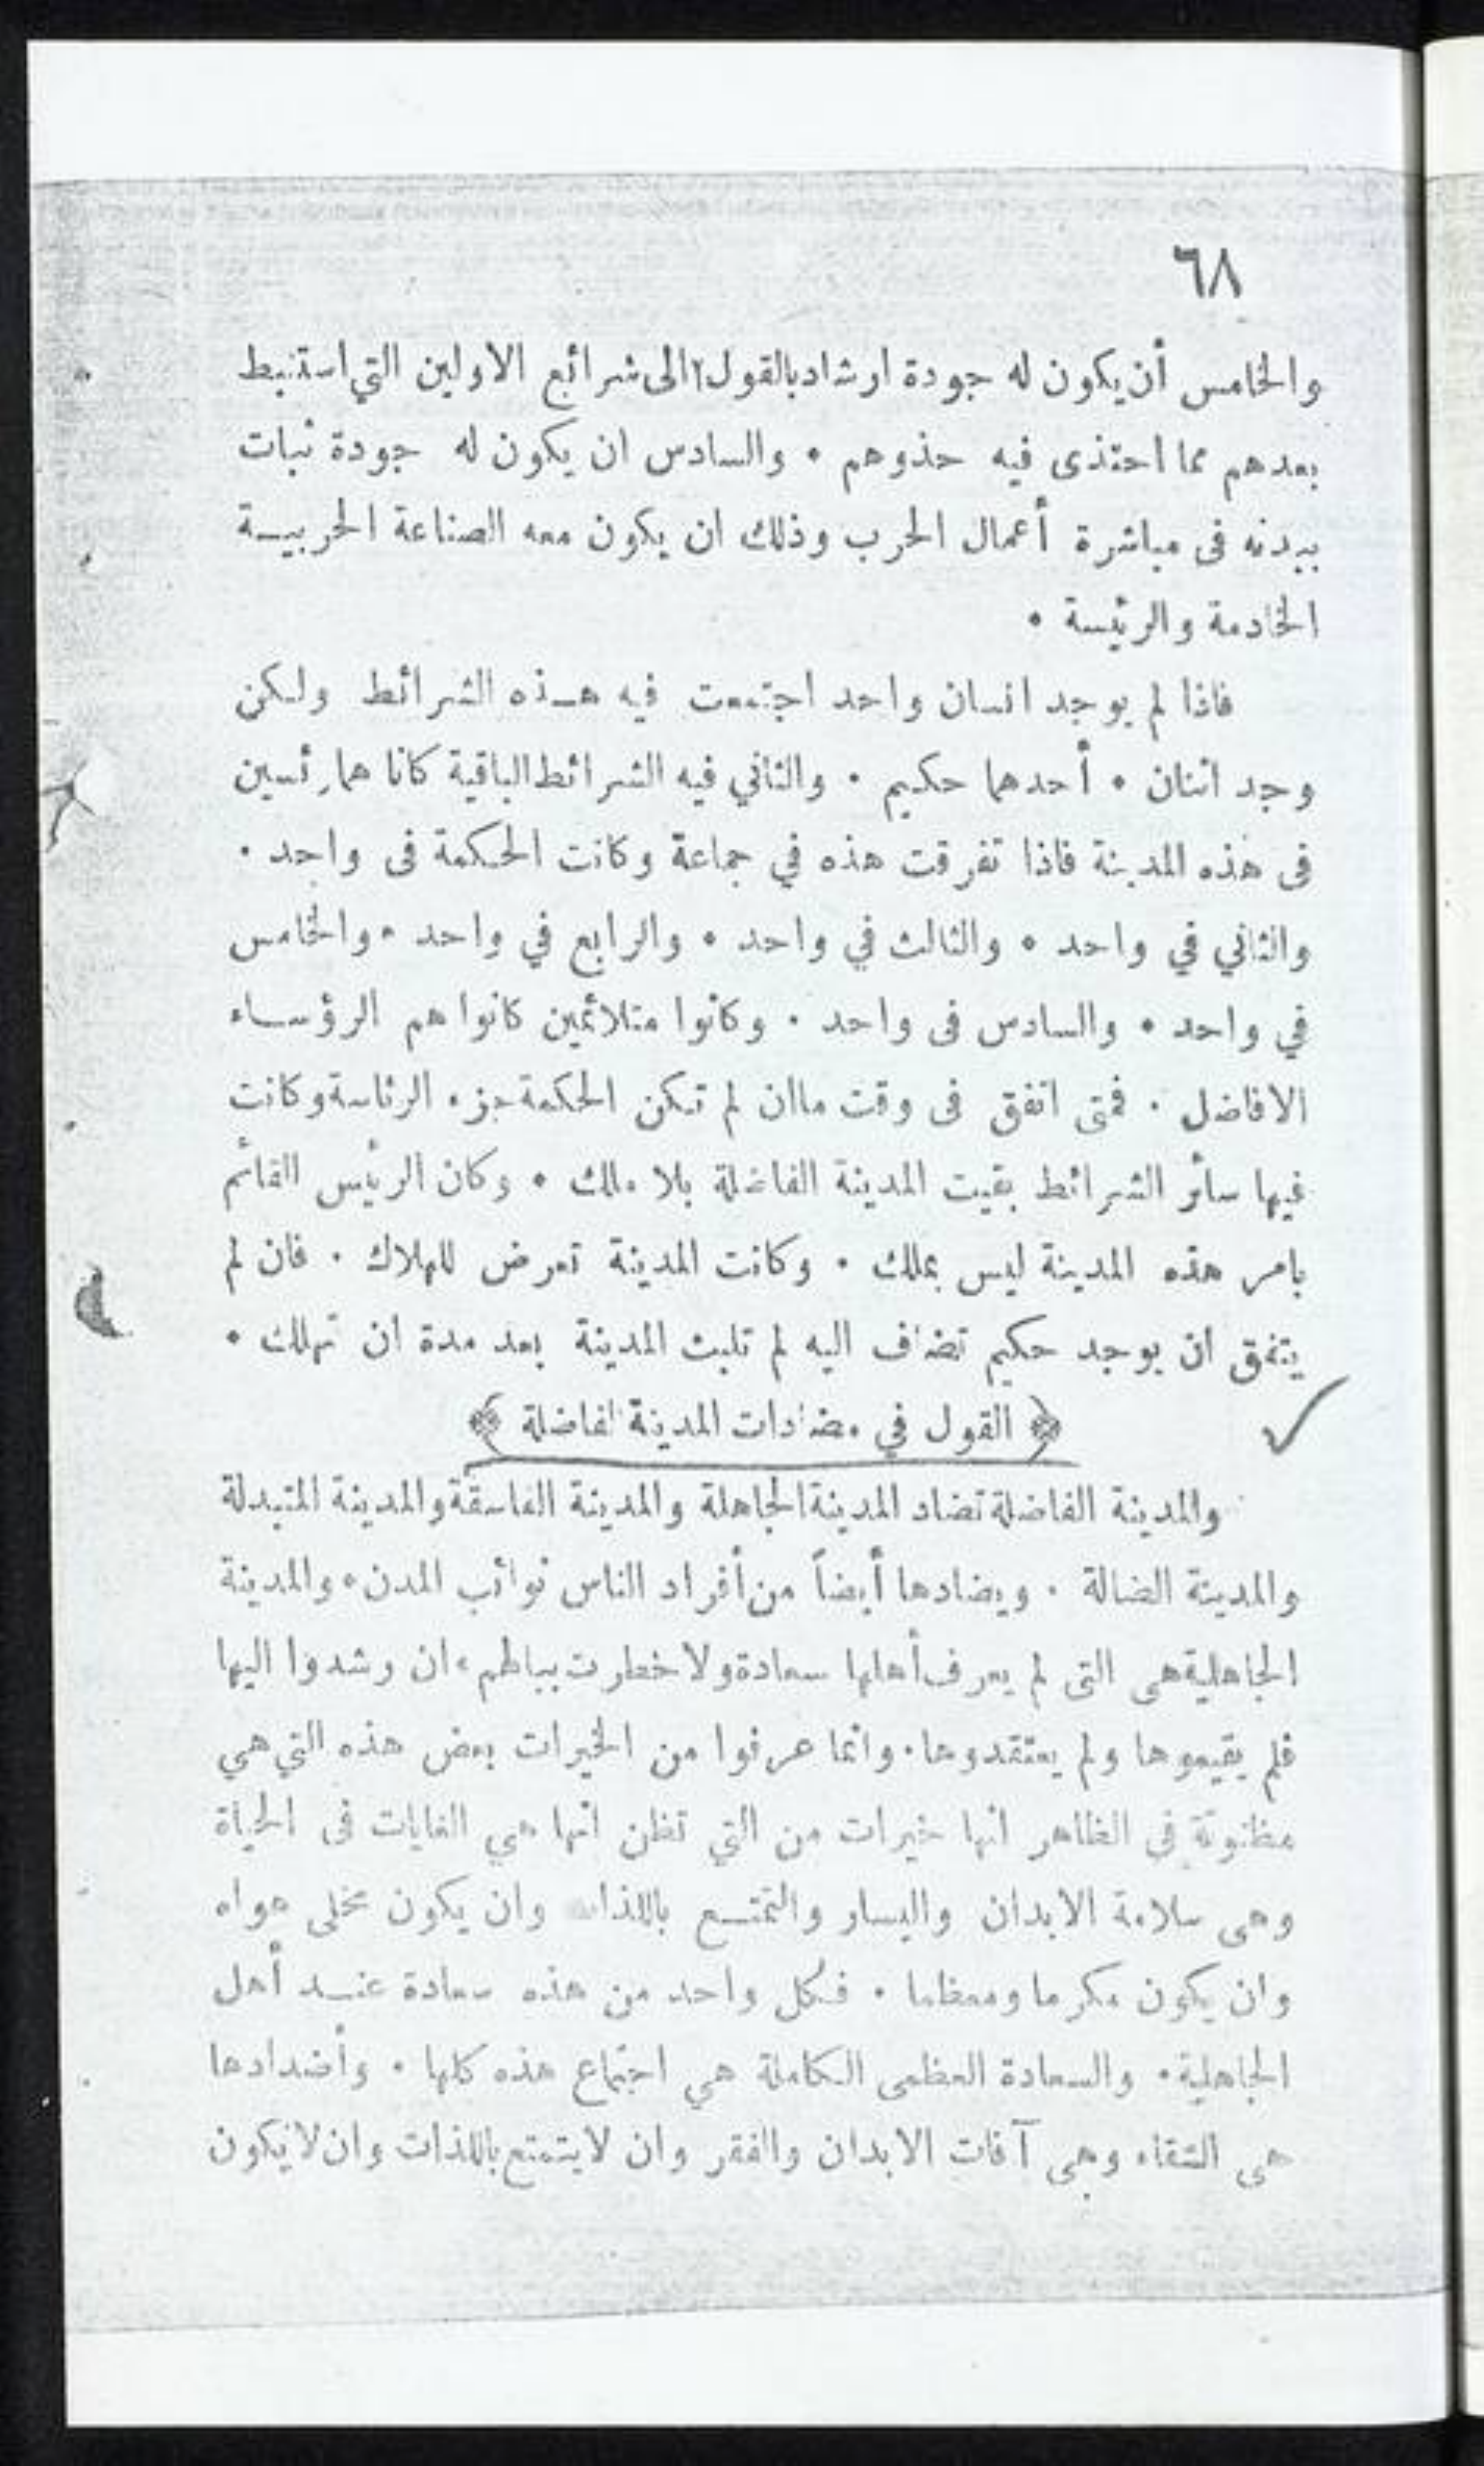 ٦٨
والخامس أن يكون له جودة ارشاد بالقول الى شرائع الاولين التي استنبط
بعدهم مما احتذى فيه حذوهم • والسادس ان يكون له جودة ثبات
ببدنه فى مباشرة أعمال الحرب وذلك ان يكون معه الصناعة الحربيـة
الخادمة والرئيسة •
فاذا لم يوجد انسان واحد اجتمعت فيه هـذه الشرائط ولكن
وجد اثنان • أحدهما حكيم • والثاني فيه الشرائط الباقية كانا هما رئسين
فى هذه المدينة فاذا تفرقت هذه في جماعة وكانت الحكمة فى واحد •
والثاني في واحد • والثالث في واحد • والرابع في واحد • والخامس
في واحد • والسادس فى واحد • وكانوا متلائمين كانوا هم الرؤساء
الافاضل • فمتى اتفق فى وقت ما ان لم تكن الحكمة جزء الرئاسة وكانت
فيها سائر الشرائط بقيت المدينة الفاضلة بلا ملك • وكان الرئيس القائم
بامر هذه المدينة ليس بملك • وكانت المدينة تعرض للهلاك • فان لم
يتفق ان يوجد حكيم تضاف اليه لم تلبث المدينة بعد مدة ان تهلك •
﴿ القول في مضادات المدينة الفاضلة ﴾
والمدينة الفاضلة تضاد المدينة الجاهلة والمدينة الفاسقة والمدينة المتبدلة
والمدينة الضالة • ويضادها أيضاً من أفراد الناس نوائب المدن • والمدينة
الجاهلية هى التى لم يعرف أهلها سعادة ولا خطرت ببالهم • ان رشدوا اليها
فلم يقيموها ولم يعتقدوها • وانما عرفوا من الخيرات بعض هذه التي هي
مظنونة فى الظاهر انها خيرات من التي تظن انها هي الغايات فى الحياة
وهى سلامة الابدان واليسار والتمتـع باللذات وان يكون مخلى هواه
وان يكون مكرما ومعظما • فكل واحد من هذه سعادة عنـد أهل
الجاهلية • والسعادة العظمى الكاملة هي اجتماع هذه كلها • وأضدادها
هى الشقاء وهى آفات الابدان والفقر وان لا يتمتع باللذات وان لا يكون